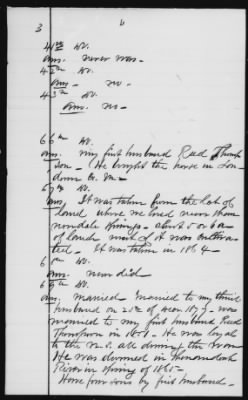 3
6
41st do.
Ans. never was-
42nd do.
Ans- no-
43rd do
Ans. no-
66th do.
Ans. My first husband Reed Thomp
son- He bought the horse in Lou
doun Co. Va-
67th do.
Ans, It was taken from the lot of
land where we lived near Shan
nondale Springs- about 5 or 6 a
of land most of it was cultiva
ted- It was taken in 1864-
68th do.
Ans- never did-
69th do.
Ans Married Married to my third
husband on 25th of 1879- was
married to my first husband Reed
Thompson in He was loyal
to the U.S. all during the war
He was drowned in Shenandoah
River in Spring of 1865-
Have four sons by first husband-